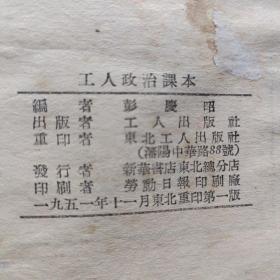 工人政治課本
編者 彭慶昭
出版者 工人出版社
重印者 東北工人出版社
(瀋陽中華路88號)
發行者 新華書店東北總分店
印刷者 勞動日報印刷廠
一九五一年十一月東北重印第一版